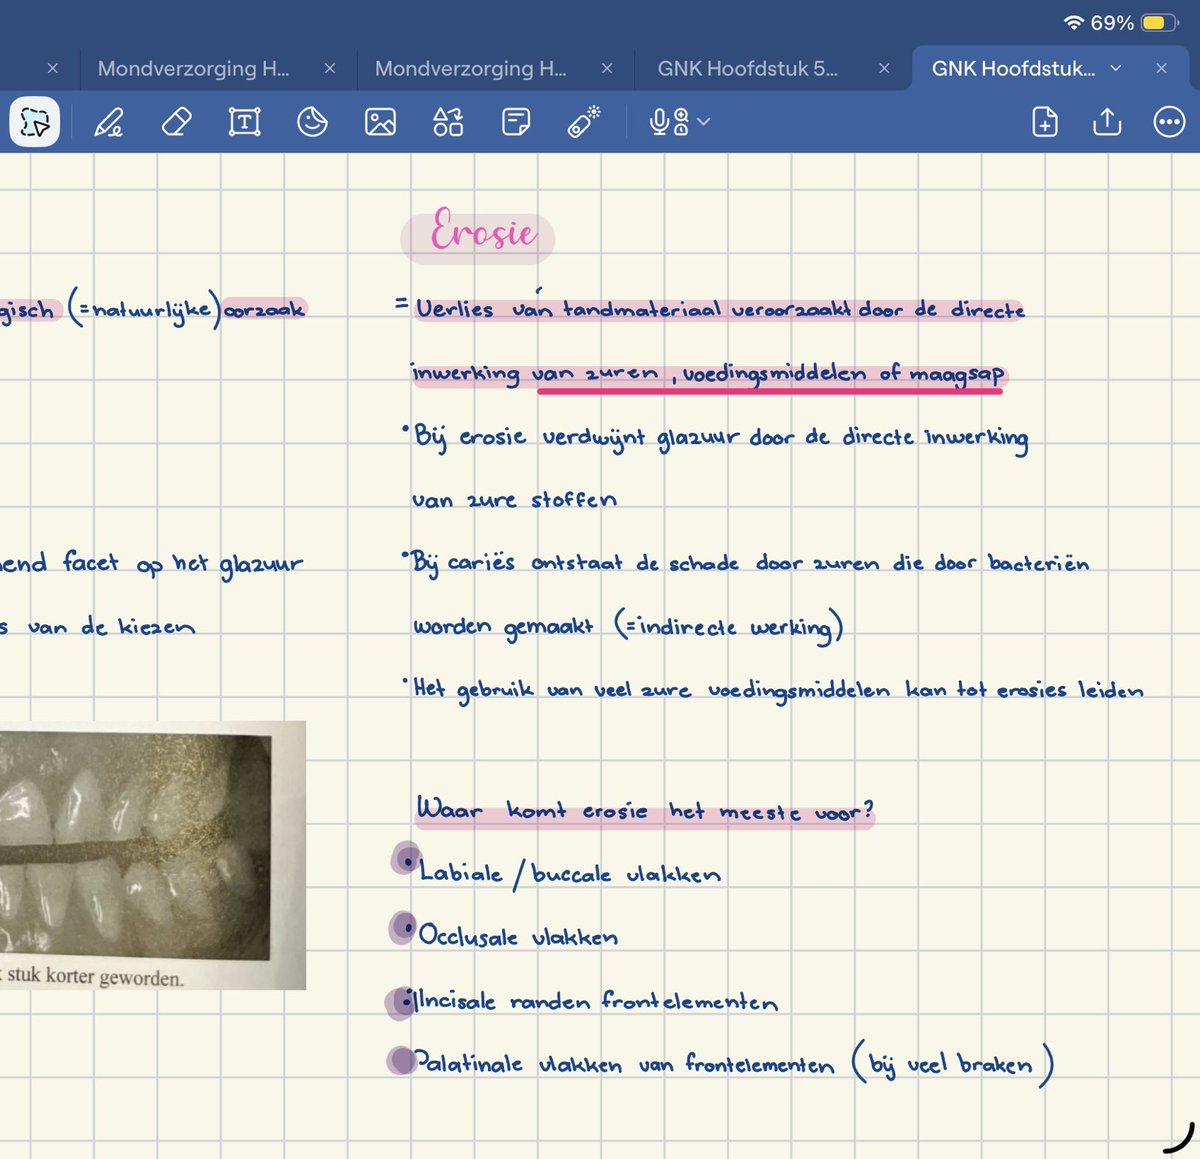 69%
Mondverzorging H...
Mondverzorging H...
GNK Hoofdstuk 5...
GNK Hoofdstuk...
Erosie
gisch (=natuurlijke) oorzaak
= Verlies van tandmateriaal veroorzaakt door de directe
inwerking van zuren, voedingsmiddelen of maagsap
• Bij erosie verdwijnt glazuur door de directe inwerking
van zure stoffen
end facet op het glazuur
• Bij cariës ontstaat de schade door zuren die door bacteriën
s van de kiezen
worden gemaakt (=indirecte werking)
• Het gebruik van veel zure voedingsmiddelen kan tot erosies leiden
Waar komt erosie het meeste voor?
• Labiale / buccale vlakken
• Occlusale vlakken
stuk korter geworden.
• Incisale randen frontelementen
Palatinale vlakken van frontelementen (bij veel braken)